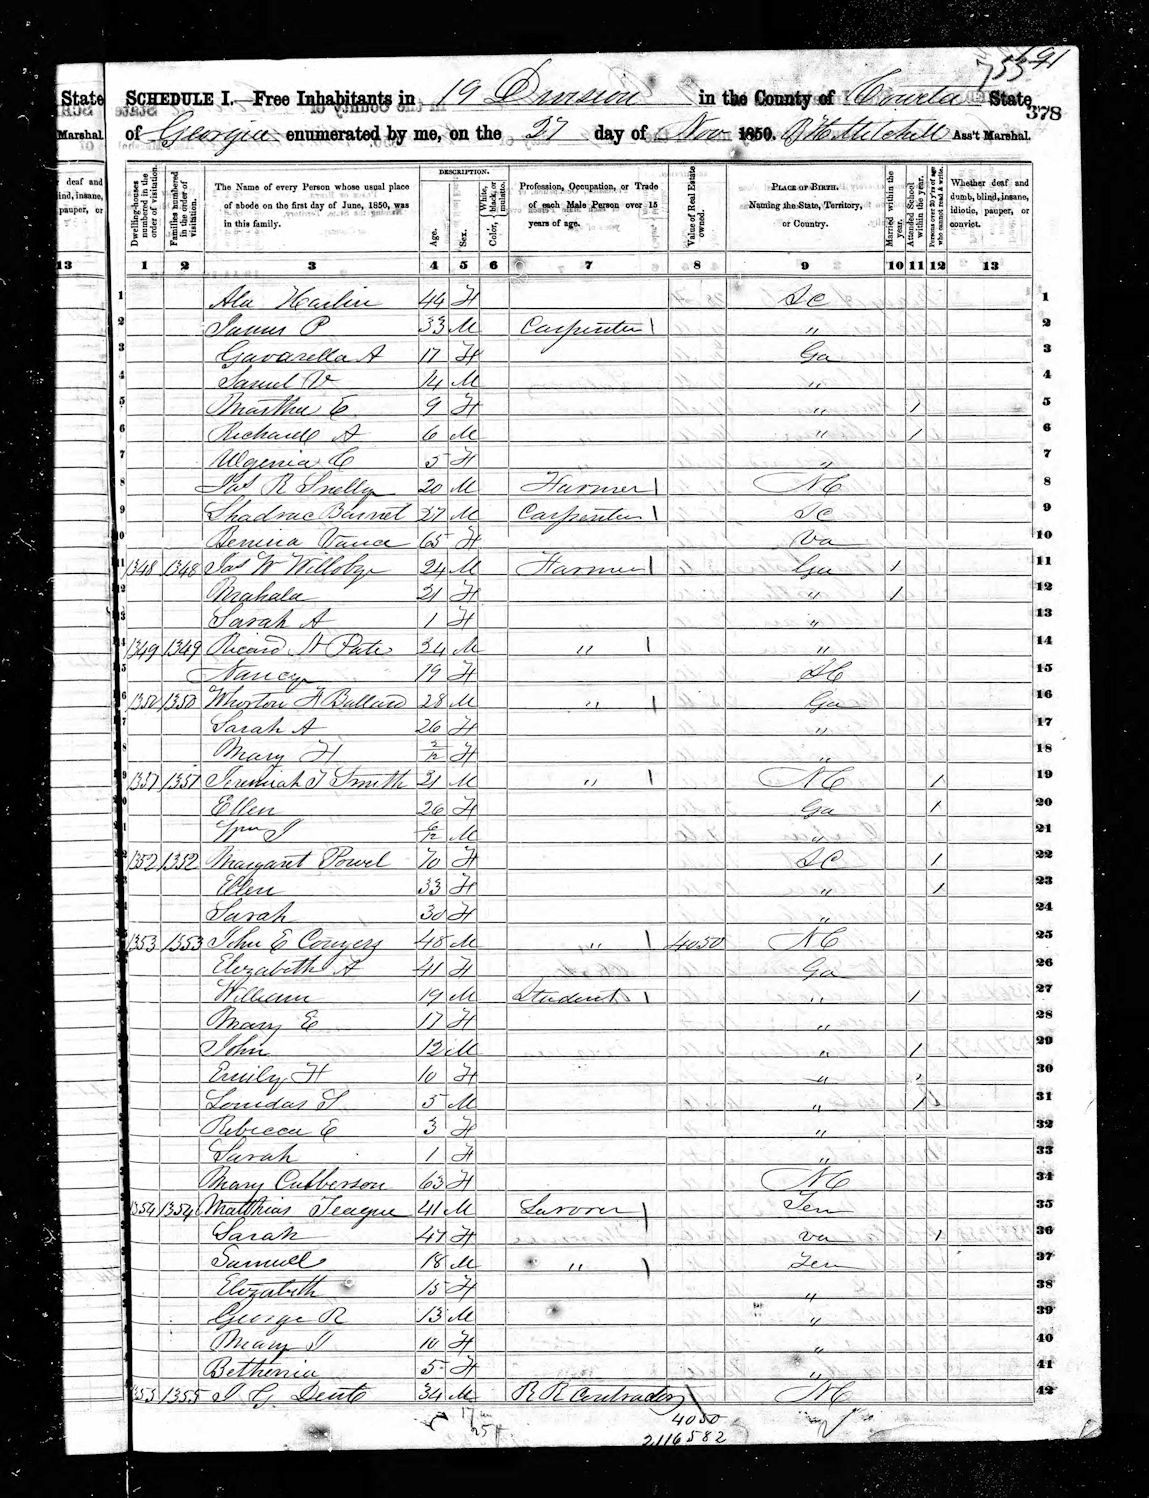 753 691
State SCHEDULE I.—Free Inhabitants in 19 Division in the County of Coweta State
378
Marshal of Georgia enumerated by me, on the 27 day of Nov 1850. Ass't Marshal.
deaf and
ind, insane,
pauper, or
13
Dwelling-houses numbered in the order of visitation.
Families numbered in the order of visitation.
The Name of every Person whose usual place of abode on the first day of June, 1850, was in this family.
DESCRIPTION.
Age.
Sex.
Color, White, black, or mulatto.
Profession, Occupation, or Trade of each Male Person over 15 years of age.
Value of Real Estate owned.
PLACE OF BIRTH.
Naming the State, Territory, or Country.
Married within the year.
Attended School within the year.
Persons over 20 y'rs of age who cannot read & write.
Whether deaf and dumb, blind, insane, idiotic, pauper, or convict.
1 2 3 4 5 6 7 8 9 10 11 12 13
1 Ala Harlin 44 F SC 1
2 James P 33 M Carpenter 1 " 2
3 Gavarella A 17 F Ga 3
4 Samuel V 14 M " 4
5 Martha E 9 F " 1 5
6 Richard A 6 M " 1 6
7 C 5 F " 7
8 Jas R Snelly 20 M Farmer 1 NC 8
9 Shadrac Barnet 27 M Carpenter 1 SC 9
10 Vance 65 F Va 10
11 1348 1348 Jas W Willobye 24 M Farmer 1 Ga 1 11
12 Mahala 21 F " 1 12
13 Sarah A 1 F " 13
14 1349 1349 Ricard H Pate 24 M " 1 " 14
15 Nancy 19 F SC 15
16 1350 1350 Whorton F Ballard 28 M " 1 Ga 16
17 Sarah A 26 F " 17
18 Mary F 2/12 F " 18
19 1351 1351 Jeremiah T Smith 21 M " 1 NC 1 19
20 Ellen 26 F Ga 1 20
21 Wm J 6/12 M " 21
22 1352 1352 Margaret Powel 70 F SC 1 22
23 Ellen 33 F " 1 23
24 Sarah 30 F " 24
25 1353 1353 John E Conyers 48 M " 1 4050 NC 25
26 Elizabeth A 41 F Ga 26
27 William 19 M Student 1 " 1 27
28 Mary E 17 F " 28
29 John 12 M " 1 29
30 Emily F 10 F " 1 30
31 Lonidas S 5 M " 1 31
32 Rebecca E 3 F " 32
33 Sarah 1 F " 33
34 Mary Culberson 63 F NC 34
35 1354 1354 Matthias Teague 41 M Laborer 1 Ten 35
36 Sarah 47 F Va 1 36
37 Samuel 18 M " 1 Ten 37
38 Elizabeth 15 F " 38
39 George R 13 M " 39
40 Mary J 10 F " 40
41 Bethenia 5 F " 41
42 1355 1355 J G Dent 34 M R R Contractor NC 42
4050
2116582